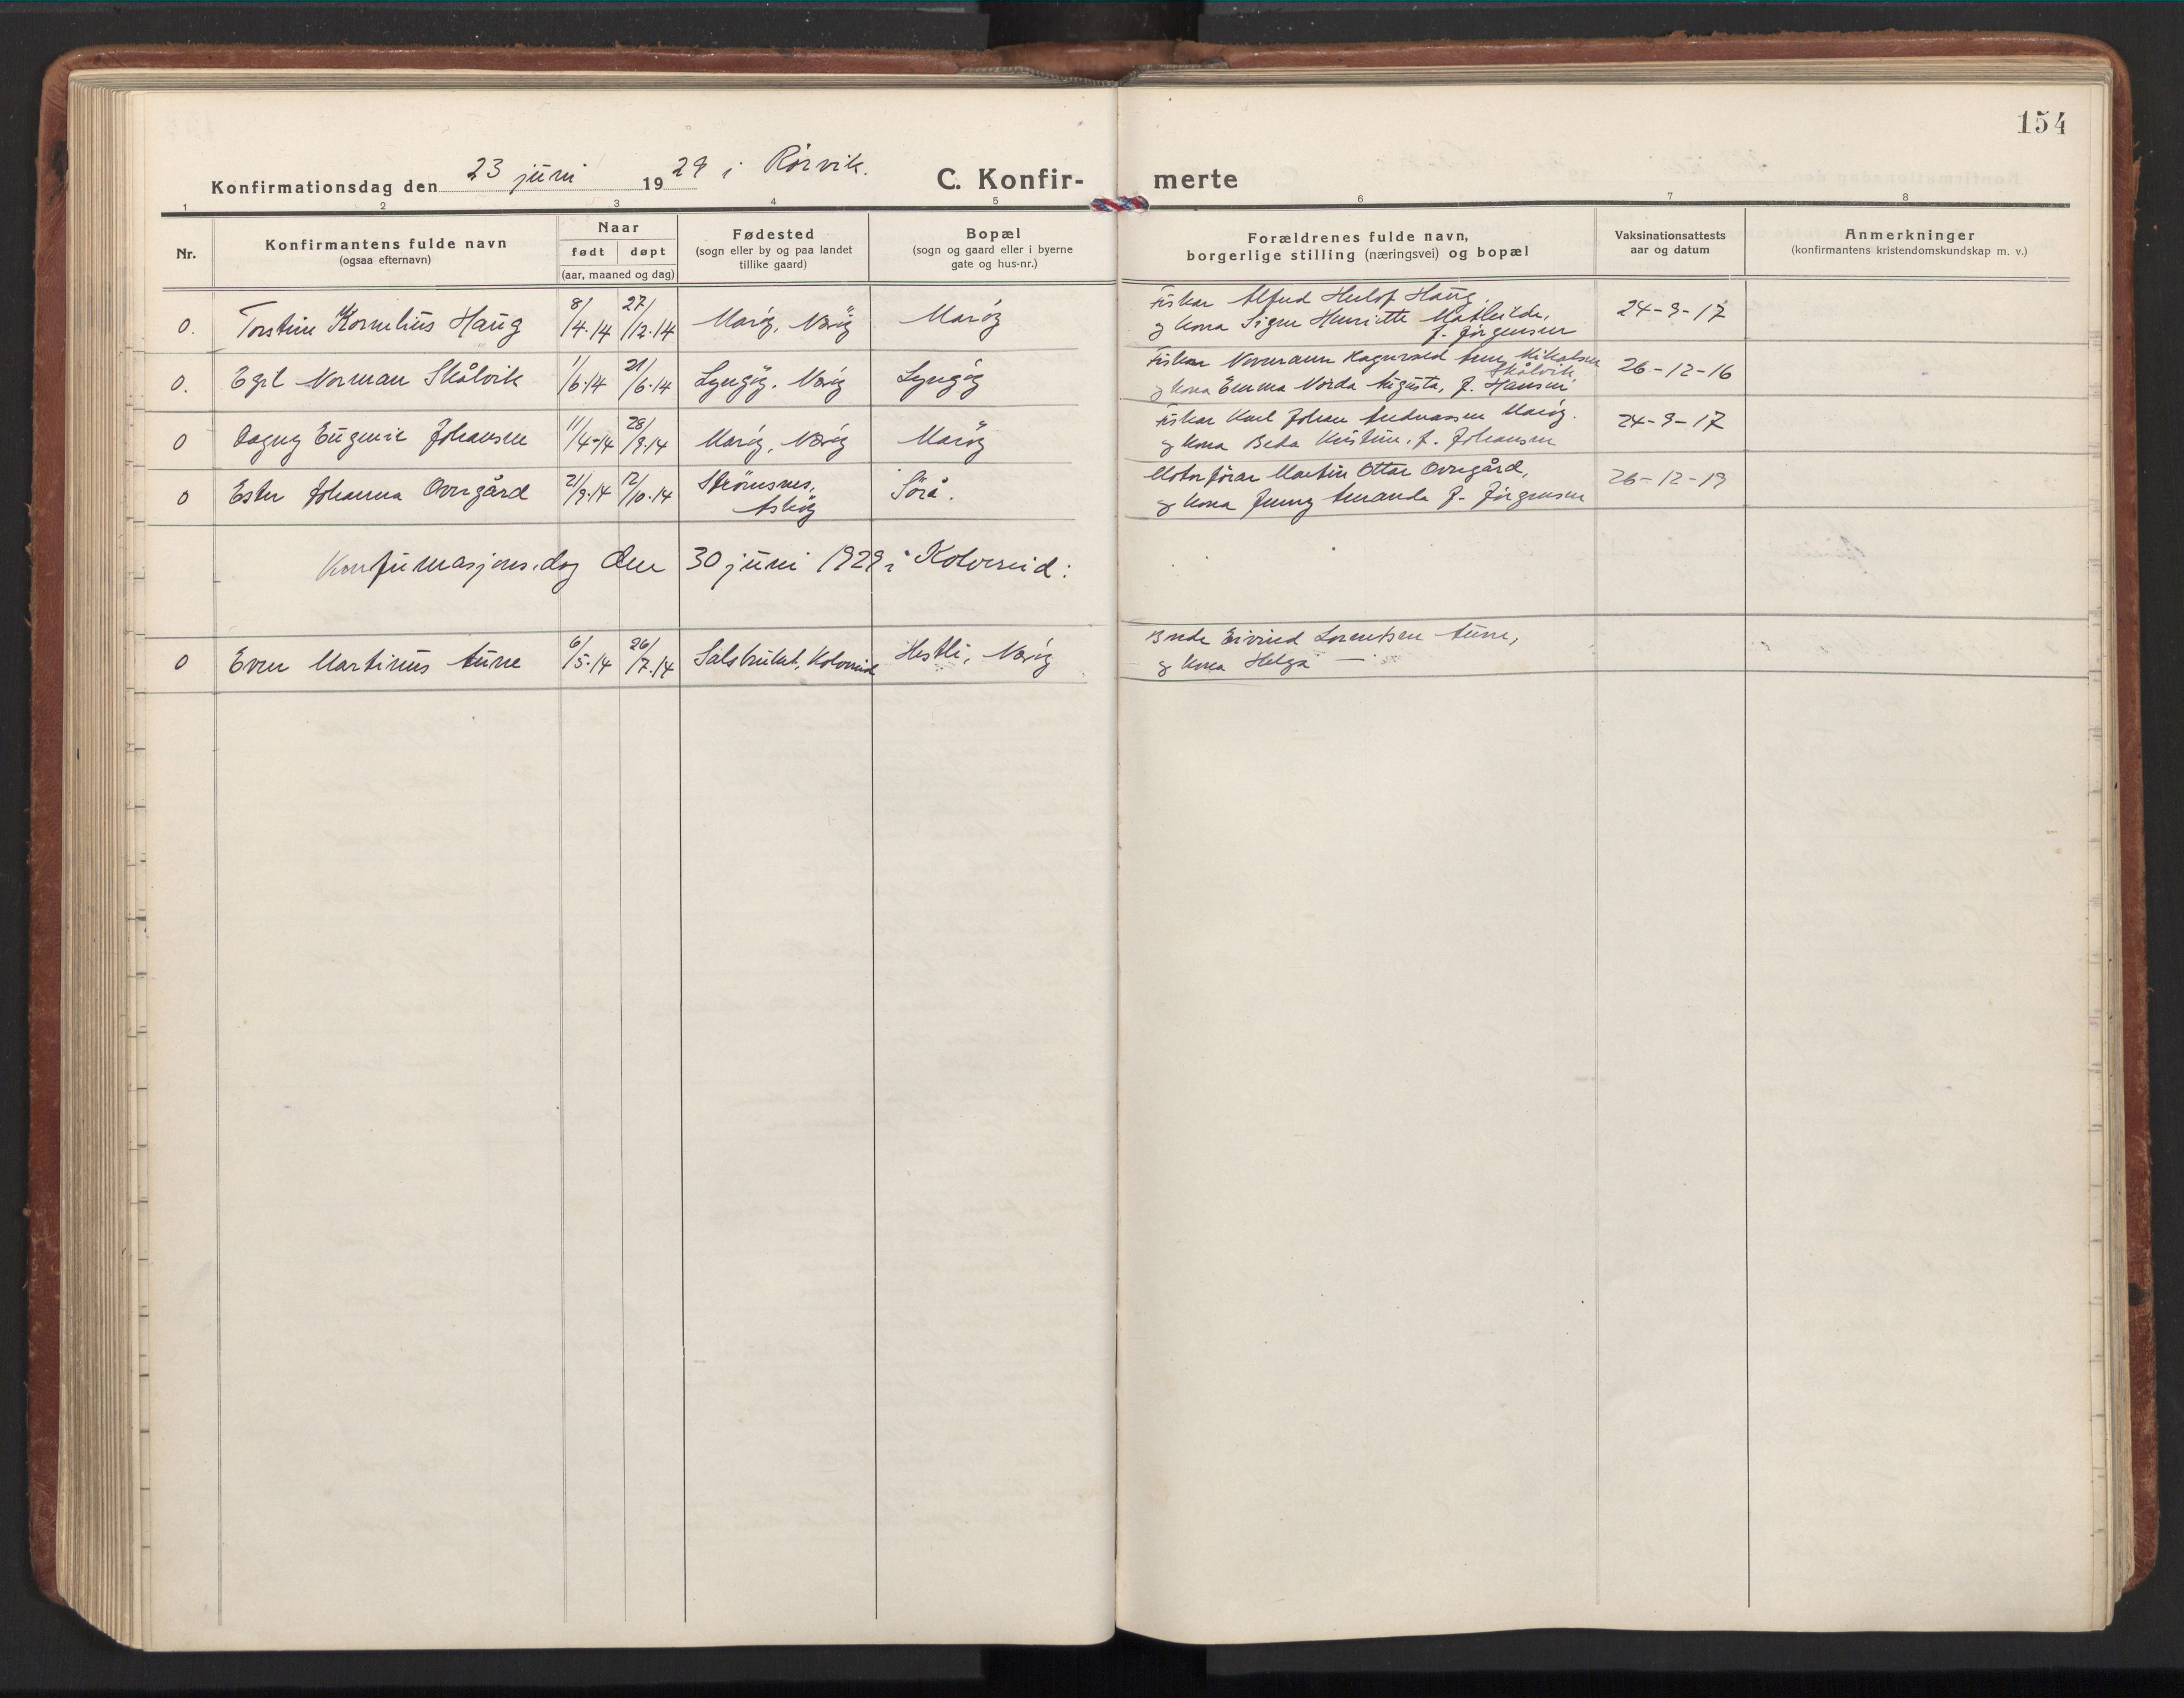 154
Konfirmationsdag den 23 juni 1929 i Rørvik.
C. Konfir- merte
1 2 3 4 5 6 7 8
Nr.
Konfirmantens fulde navn
(ogsaa efternavn)
Naar
født døpt
(aar, maaned og dag)
Fødested
(sogn eller by og paa landet
tillike gaard)
Bopæl
(sogn og gaard eller i byerne
gate og hus-nr.)
Forældrenes fulde navn,
borgerlige stilling (næringsvei) og bopæl
Vaksinationsattests
aar og datum
Anmerkninger
(konfirmantens kristendomskundskap m. v.)
0. Torstein Kornelius Haug 8/4.14 27/12.14 Marøy, Nærøy Marøy
Fiskar Alfred Haug.
og kona Signe Henriette Mathilde,
f. Jørgensen
24-9-17
0. Egil Norman Skålvik 1/6.14 21/6.14 Lyngøy, Nærøy Lyngøy
Fiskar Normann Ragnvald Mikalsen
Skålvik
og kona Emma Norda Augusta, f. Hansen
26-12-16
0 Dagny Eugenie Johansen 11/4-14 28/9.14 Marøy, Nærøy Marøy
Fiskar Karl Johan Andreassen Marøy.
og kona Beda Kristine, f. Johansen
24-9-17
0 Ester Johanna Overgård 21/9.14 12/10.14 Strømsnes, Sørå.
Motorførar Martin Ottar Overgård,
og kona Jenny Amanda f. Jørgensen
26-12-19
Konfirmasjonsdag den 30 juni 1929 i Kolvereid:
0 Even Martinus Aune 6/5.14 26/7.14 Salsbruket, Kolvereid Hestli, Nærøy
Bonde Eivind Lorentsen Aune,
og kona Helga —